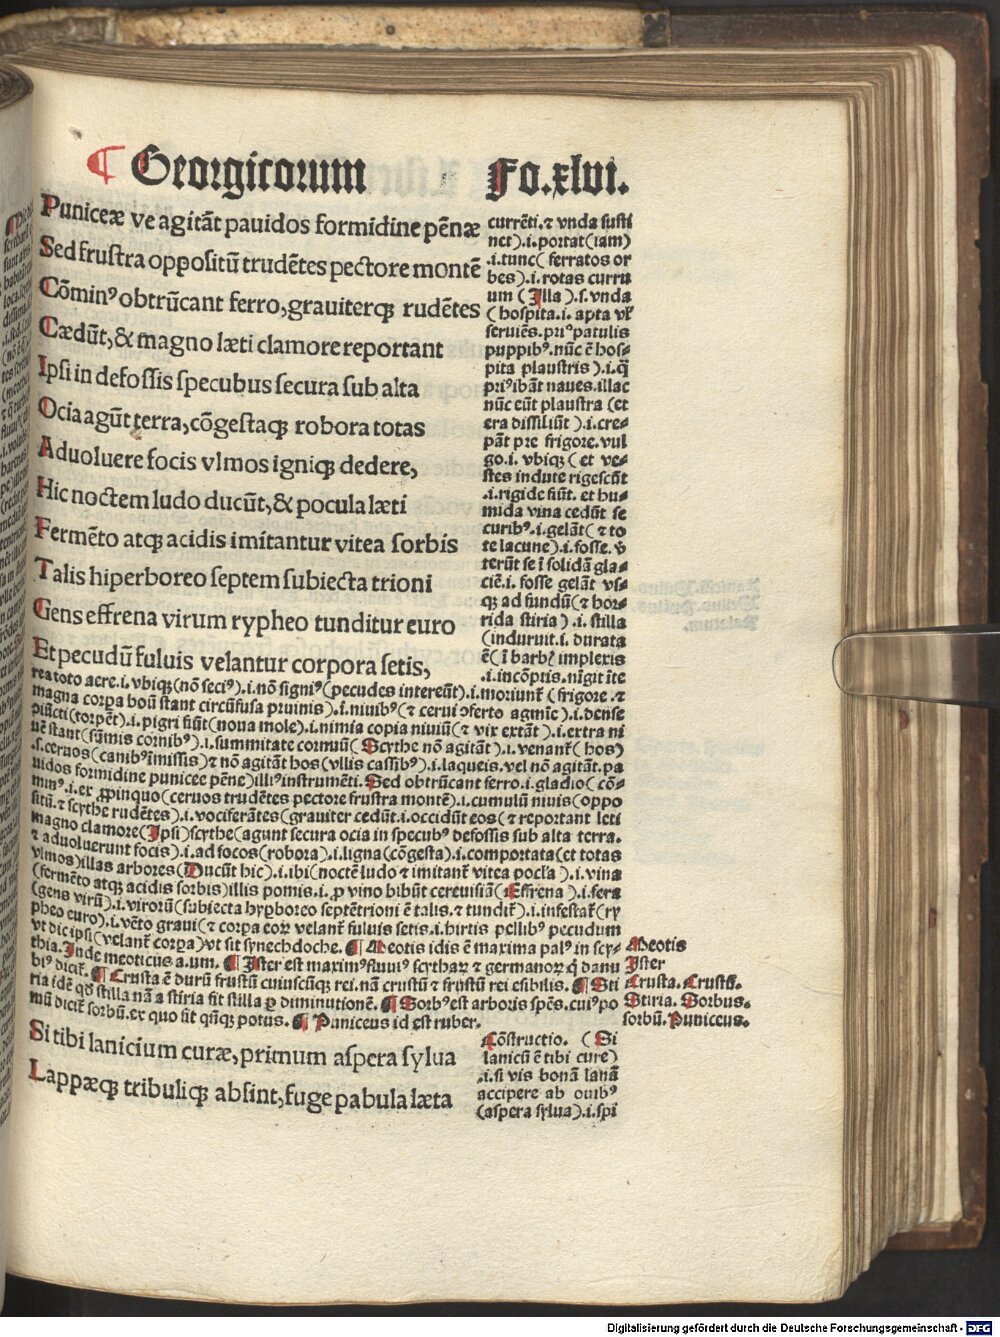 ¶ Georgicorum Fo.xlvi.
Puniceæ ve agitāt pauidos formidine pēnæ
Sed frustra oppositū trudētes pectore montē
Cōminꝰ obtrūcant ferro, grauiterqꝫ rudētes
Cædūt, & magno læti clamore reportant
Ipsi in defossis specubus secura sub alta
Ocia agūt terra, cōgestaqꝫ robora totas
Aduoluere focis vlmos igniqꝫ dedere,
Hic noctem ludo ducūt, & pocula læti
Fermēto atqꝫ acidis imitantur vitea sorbis
Talis hiperboreo septem subiecta trioni
Gens effrena virum rypheo tunditur euro
Et pecudū fuluis velantur corpora setis,
currēti.⁊ vnda susti
net).i.portat(iam)
.i.tunc( ferratos or
bes).i.rotas curru
um (Illa ).s.vnda
(hospita.i. apta vł
seruiēs.priꝰ patulis
puppibꝰ.nūc ē hos-
pita plaustris ).i.q̄
priꝰ ibāt naues.illac
nūc eūt plaustra (et
era dissiliūt ).i.cre-
pāt pre frigore.vul
go.i. vbiqꝫ( et ve-
stes indute rigescūt
.i.rigide fiūt. et hu-
mida vina cedūt se
curibꝰ.i.gelāt( ⁊ to
te lacune).i.fosse. v̄
terūt se ī solidā gla-
ciē.i. fosse gelāt vs-
qꝫ ad fundū(⁊ hor-
rida stiria ).i.stilla
(induruit.i. durata
ē( ī barbꝭ implexis
.i.incōptis.nīgit īte
rea toto aere.i.vbiqꝫ(nō seciꝰ).i.nō signiꝰ(pecudes intereūt).i.moriunt᷑ (frigore .⁊
magna corpa boū stant circūfusa pruinis).i.niuibꝰ(⁊ cerui ɔferto agmīe).i.dense
piūcti(torpēt).i.pigri fiūt(noua mole).i.nimia copia niuiū(⁊ vix extāt).i.extra ni
uē stant(sūmis cornibꝰ).i.summitate cornuū( Scythe nō agitāt).i.venant᷑ (hos)
.s.ceruos(canibꝰīmissis)⁊ nō agitāt hos(vllis cassibꝰ).i.laqueis.vel nō agitāt.pa
uidos formidine punicee pēne)illiꝰ instrumēti. Sed obtrūcant ferro.i.gladio( cō-
minꝰ.i.ex ꝓpinquo(ceruos trudētes pectore frustra montē).i.cumulū niuis(oppo
sitū.⁊ scythe rudētes).i.vociferātes(grauiter cedūt.i.occidūt eos(⁊ reportant leti
magno clamore(Ipsi)scythe(agunt secura ocia in specubꝰ defossis sub alta terra.
⁊ aduoluerunt focis).i.ad focos(robora).i.ligna(cōgesta).i.comportata(et totas
vlmos)illas arbores(Ducūt hic).i.ibi(noctē ludo ⁊ imitant᷑ vitea pocła ).i.vina
(fermēto atqꝫ acidis sorbis)illis pomis.i. ꝓ vino bibūt cereuisiā(Effrena ).i.fera
(gens virū).i.virorū(subiecta hyꝑboreo septētrioni ē talis.⁊ tundit᷑).i.infestat᷑(ry
pheo euro).i.vēto graui(⁊ corpa eoꝝ velant᷑ fuluis setis.i.hirtis pellibꝰ pecudum
vt dic ipsi(velant᷑ corpa)vt sit synechdoche. ¶ Meotis idis ē maxima palꝰ in scy-
thia.Inde meoticus a.um. ¶ Ister est maximꝰ fluuiꝰ scythaꝝ ⁊ germanoꝝ q̄ danu
biꝰ dicit᷑. ¶ Crusta ē durū frustū cuiuscūqꝫ rei.nā crustū ⁊ frustū rei esibilis. ¶ Sti
ria idē qđ stilla nā a stiria fit stilla ꝑ diminutionē. ¶ Sorbꝰ est arboris spēs.cuiꝰ po
mū dicit᷑ sorbū.ex quo fit qn̄qꝫ potus. ¶ Puniceus id est ruber.
Meotis
Ister
Crusta. Crustū.
Stiria. Sorbus.
sorbū. Puniceus.
Si tibi lanicium curæ, primum aspera sylua
Lappæqꝫ tribuliqꝫ absint, fuge pabula læta
Cōstructio. ( Si
laniciū ē tibi cure)
.i.si vis bonā lanā
accipere ab ouibꝰ
(aspera sylua).i.spi
Digitalisierung gefördert durch die Deutsche Forschungsgemeinschaft - DFG